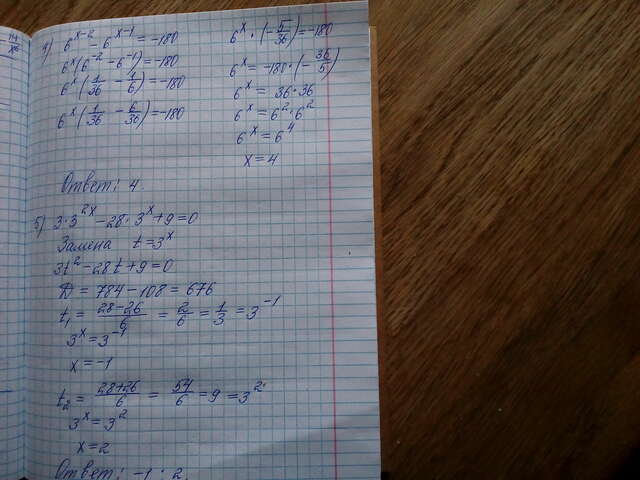 4) 6^(x-2) - 6^(x-1) = -180
6^x(6^(-2) - 6^(-1)) = -180
6^x(1/36 - 1/6) = -180
6^x(1/36 - 6/36) = -180
6^x · (-5/36) = -180
6^x = -180 · (-36/5)
6^x = 36·36
6^x = 6^2 · 6^2
6^x = 6^4
x = 4
Ответ: 4.
5) 3·3^(2x) - 28·3^x + 9 = 0
Замена t = 3^x
3t^2 - 28t + 9 = 0
D = 784 - 108 = 676
t₁ = (28-26)/6 = 2/6 = 1/3 = 3^(-1)
3^x = 3^(-1)
x = -1
t₂ = (28+26)/6 = 54/6 = 9 = 3^2
3^x = 3^2
x = 2
Ответ: -1; 2.